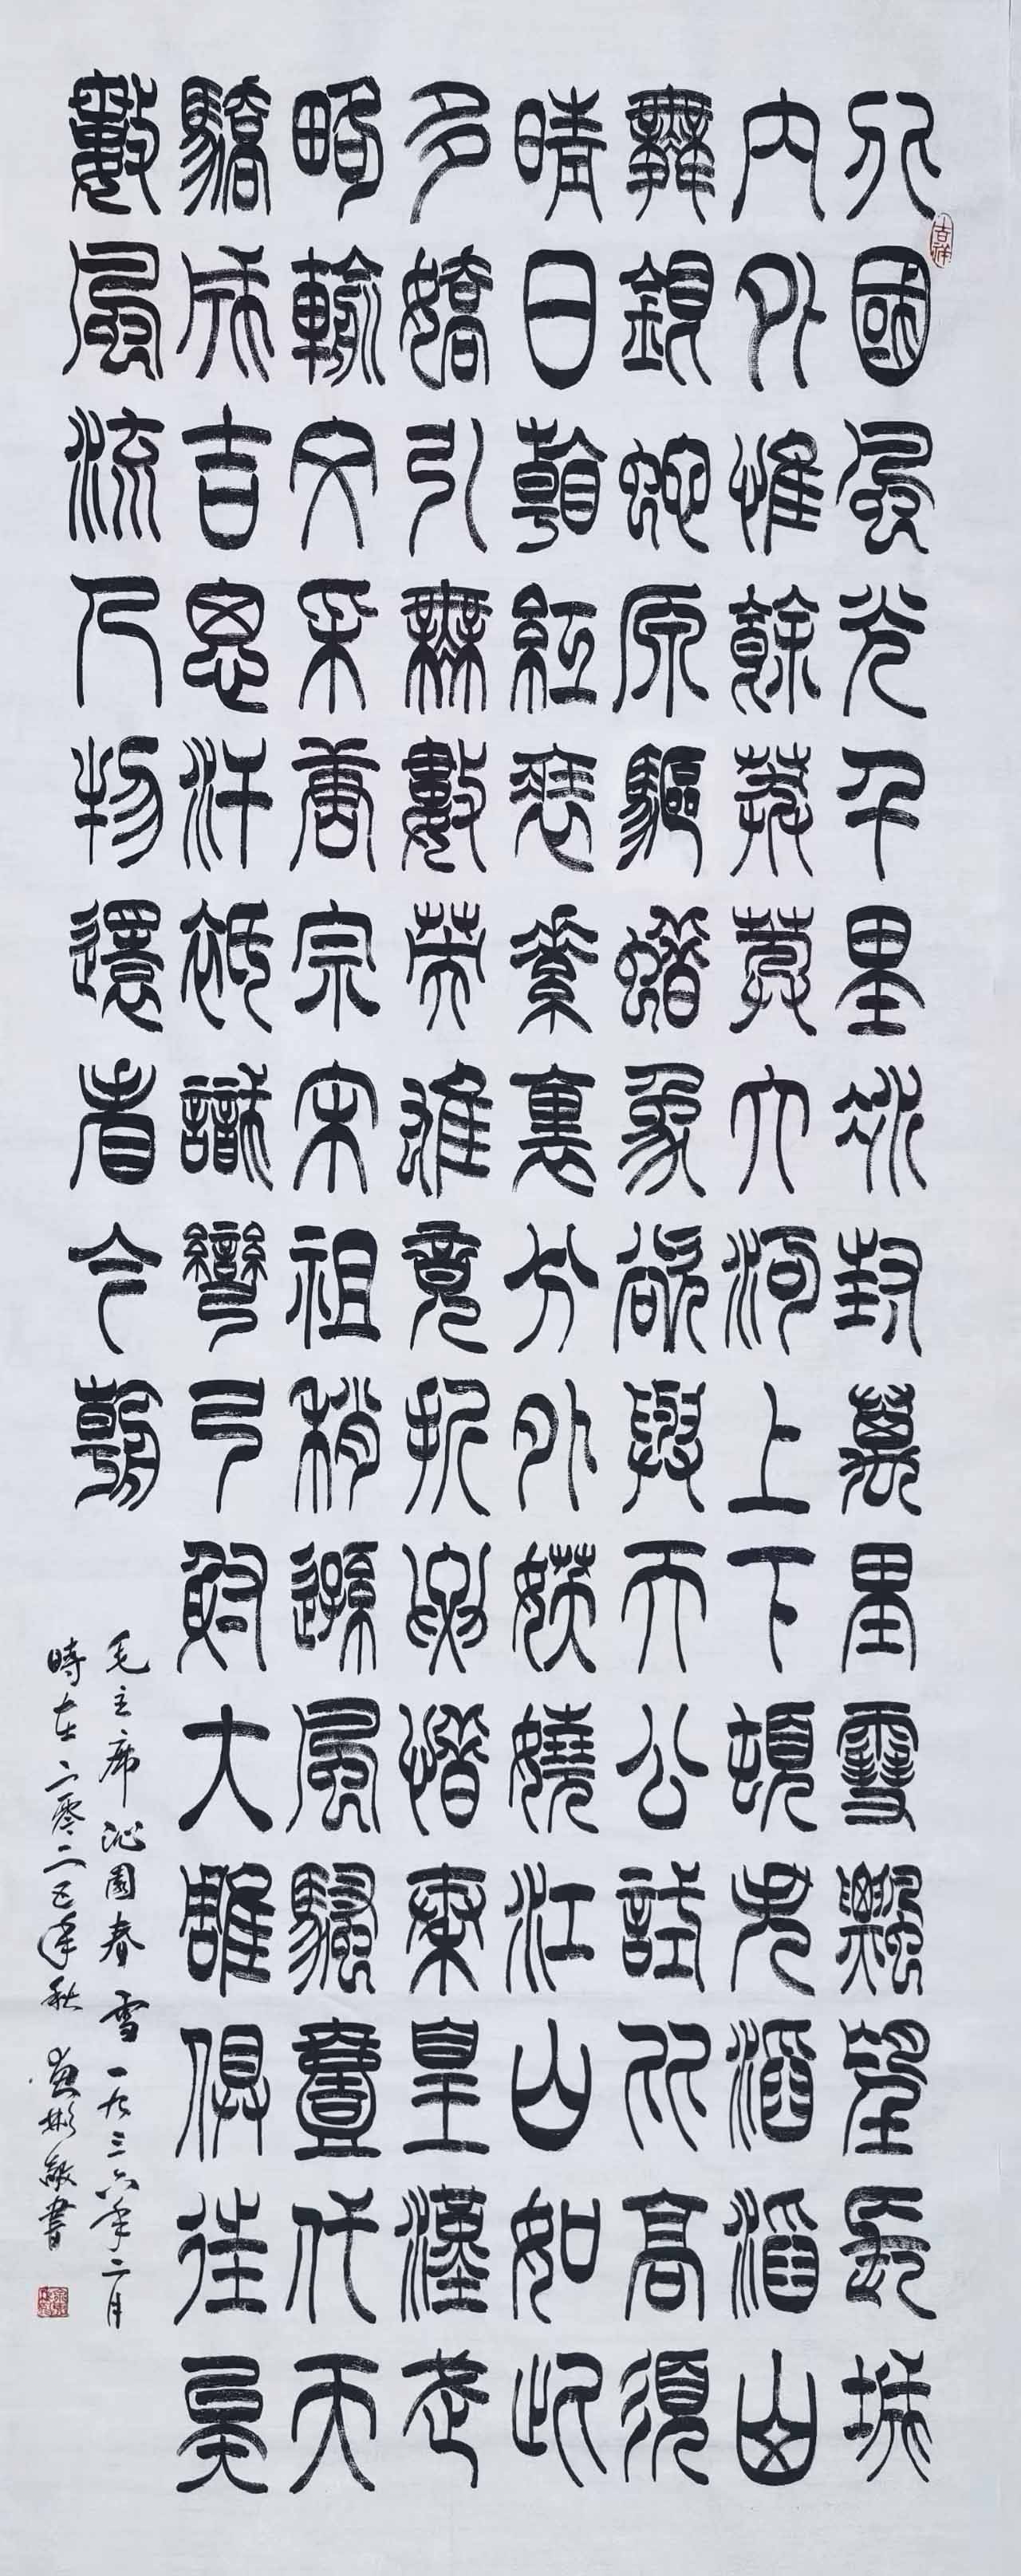 北國風光千里冰封萬里雪飄望長城
內外惟餘莽莽大河上下頓失滔滔山
舞銀蛇原驅蠟象欲與天公試比高須
晴日看紅裝素裹分外妖嬈江山如此
多嬌引無數英雄競折腰惜秦皇漢武
略輸文采唐宗宋祖稍遜風騷壹代天
驕成吉思汗祇識彎弓射大雕俱往矣
數風流人物還看今朝
毛主席沁園春雪一九三六年二月
時在二零二五年秋彬敬書
吉祥